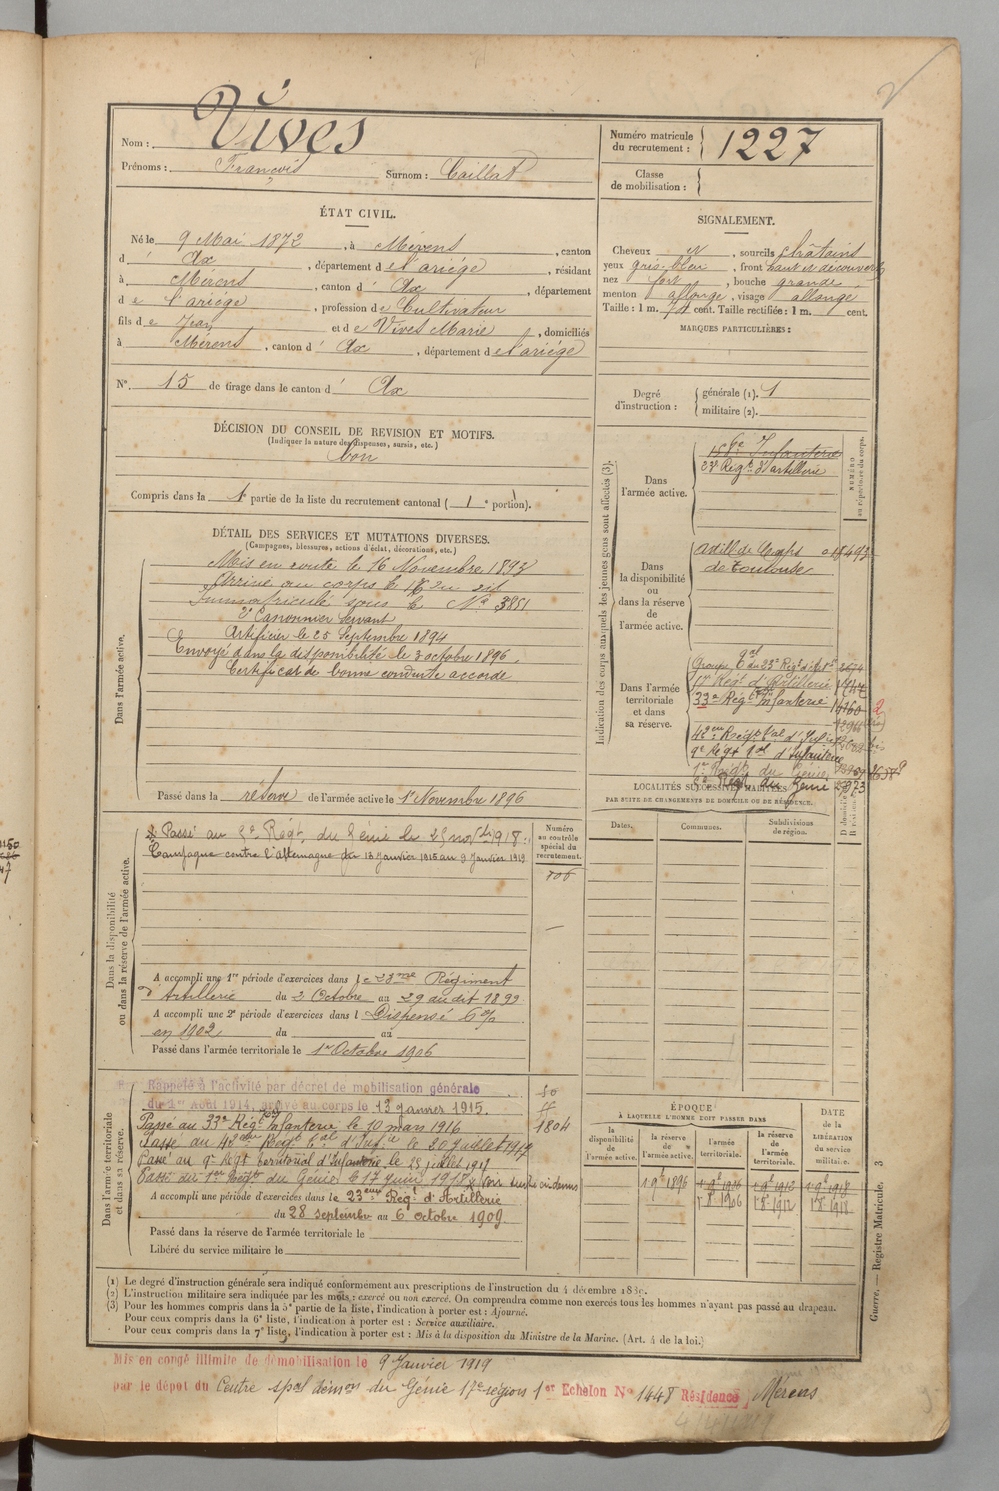 Nom : Vives
Prénoms : François Surnom : Caillat
Numéro matricule du recrutement : 1227
Classe de mobilisation :
ÉTAT CIVIL.
Né le 9 Mai 1872, à Mérens, canton
d' Ax, département de l'ariége, résidant
à Mérens, canton d' Ax, département
de l'ariége, profession de Cultivateur
fils de Jean et de Vives Marie, domiciliés
à Mérens, canton d' Ax, département de l'ariége
N° 15 de tirage dans le canton d' Ax
SIGNALEMENT.
Cheveux et, sourcils châtains
yeux gris-bleu, front haut et découvert
nez fort, bouche grande
menton allongé, visage allongé
Taille : 1 m. 74 cent. Taille rectifiée : 1 m. cent.
MARQUES PARTICULIÈRES :
Degré d'instruction :
générale (1). 1
militaire (2).
DÉCISION DU CONSEIL DE REVISION ET MOTIFS.
(Indiquer la nature des dispenses, sursis, etc.)
bon
Compris dans la 1e partie de la liste du recrutement cantonal ( 1e portion).
DÉTAIL DES SERVICES ET MUTATIONS DIVERSES.
(Campagnes, blessures, actions d'éclat, décorations, etc.)
Dans l'armée active.
Mis en route le 16 Novembre 1893
Arrivé au corps le 16 du dit
Immatriculé sous le No 3851
2e Canonnier servant
Artificier le 25 Septembre 1894
Envoyé dans la disponibilité le 3 octobre 1896.
Certificat de bonne conduite accordé
Passé dans la réserve de l'armée active le 1er Novembre 1896
Indication des corps auxquels les jeunes gens sont affectés (3).
NUMÉRO au répertoire du corps.
Dans l'armée active.
Infanterie
23e Régt d'artillerie
Dans la disponibilité ou dans la réserve de l'armée active.
Artill de Corps 018493
de Toulouse
Dans l'armée territoriale et dans sa réserve.
Groupe du 23e Régt d'Art
Régt d'Artillerie
33e Régt Infanterie
42e Régt
9e Régt d'Infanterie
1er Régt du Génie
Régt du Génie
LOCALITÉS SUCCESSIVES HABITÉES
PAR SUITE DE CHANGEMENTS DE DOMICILE OU DE RÉSIDENCE.
Dates. Communes. Subdivisions de région.
Dans la disponibilité ou dans la réserve de l'armée active.
Numéro au contrôle spécial du recrutement.
Passé au 2e Régt du Génie le 25 nov 1918.
Campagne contre l'allemagne du 13 Janvier 1915 au 9 Janvier 1919
A accompli une 1re période d'exercices dans le 23me Régiment
d'Artillerie du 2 Octobre au 29 du dit 1899
A accompli une 2e période d'exercices dans l Dispensé
en 1902 du au
Passé dans l'armée territoriale le 1er Octobre 1906
Dans l'armée territoriale et dans sa réserve.
Rappelé à l'activité par décret de mobilisation générale
du 1er Août 1914, arrivé au corps le 13 janvier 1915.
Passé au 33e Régt Infanterie le 10 mars 1916
1804
Passé au 42e Régt d'Infie le 20 Juillet 1917
Passé au 9e Régt territorial d'Infanterie le 25 juillet 1917
Passé au 1er Régt du Génie le 17 juin 1918
A accompli une période d'exercices dans le 23eme Régt d'Artillerie
du 28 septembre au 6 octobre 1909
Passé dans la réserve de l'armée territoriale le
Libéré du service militaire le
ÉPOQUE
À LAQUELLE L'HOMME DOIT PASSER DANS
la disponibilité de l'armée active.
la réserve de l'armée active.
l'armée territoriale.
la réserve de l'armée territoriale.
DATE DE LA LIBÉRATION du service militaire.
1 9e 1896 1 9e 1906 1 9e 1912 1 9e 1918
1 8e 1906 1 8e 1912 1 8e 1918
Guerre. — Registre Matricule. 3
(1) Le degré d'instruction générale sera indiqué conformément aux prescriptions de l'instruction du 4 décembre 1889.
(2) L'instruction militaire sera indiquée par les mots : exercé ou non exercé. On comprendra comme non exercés tous les hommes n'ayant pas passé au drapeau.
(3) Pour les hommes compris dans la 5e partie de la liste, l'indication à porter est : Ajourné.
Pour ceux compris dans la 6e liste, l'indication à porter est : Service auxiliaire.
Pour ceux compris dans la 7e liste, l'indication à porter est : Mis à la disposition du Ministre de la Marine. (Art. 4 de la loi.)
Mis en congé illimité de démobilisation le 9 Janvier 1919
par le dépôt du Centre spal démon du Génie 17e région 1er Echelon No 1448 Résidence Mérens